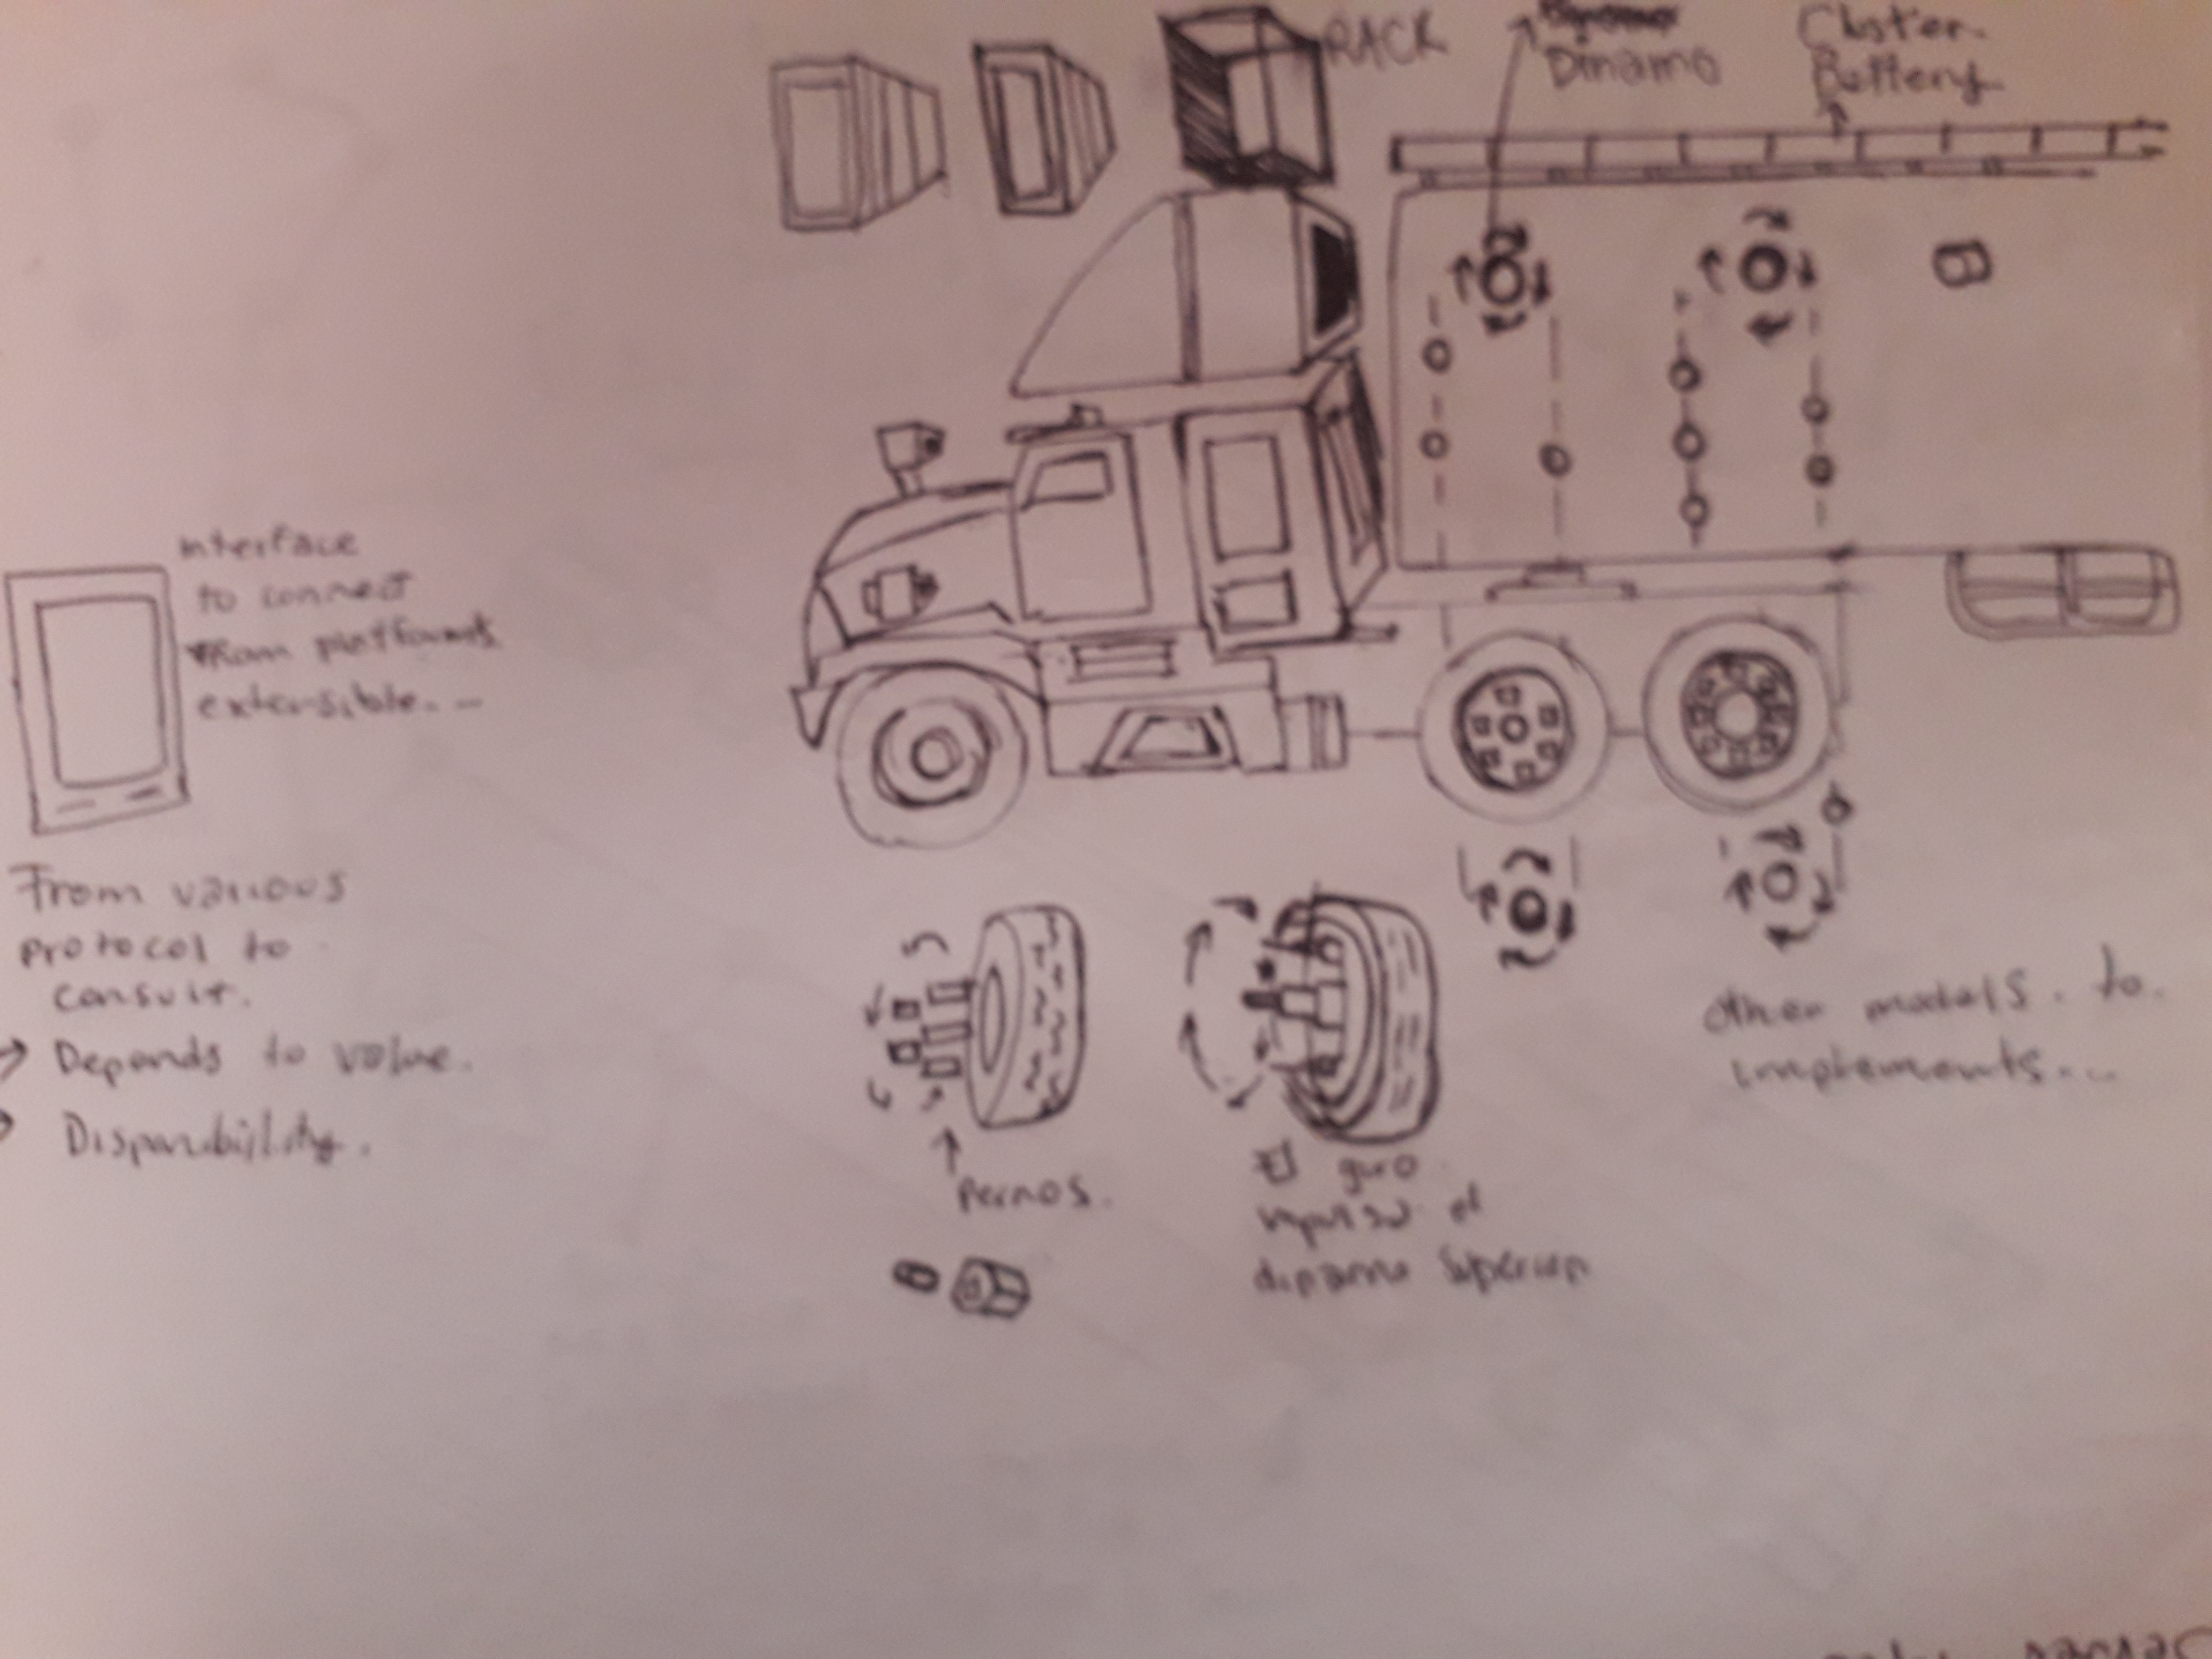 RACK
Dinamo
Cluster-
Battery
B
Interface
to connect
extensible--
From various
protocol to
consult.
Depends to value.
Disponibility.
pernos.
El giro
el
dinamo
Other models. to.
implements--
Server